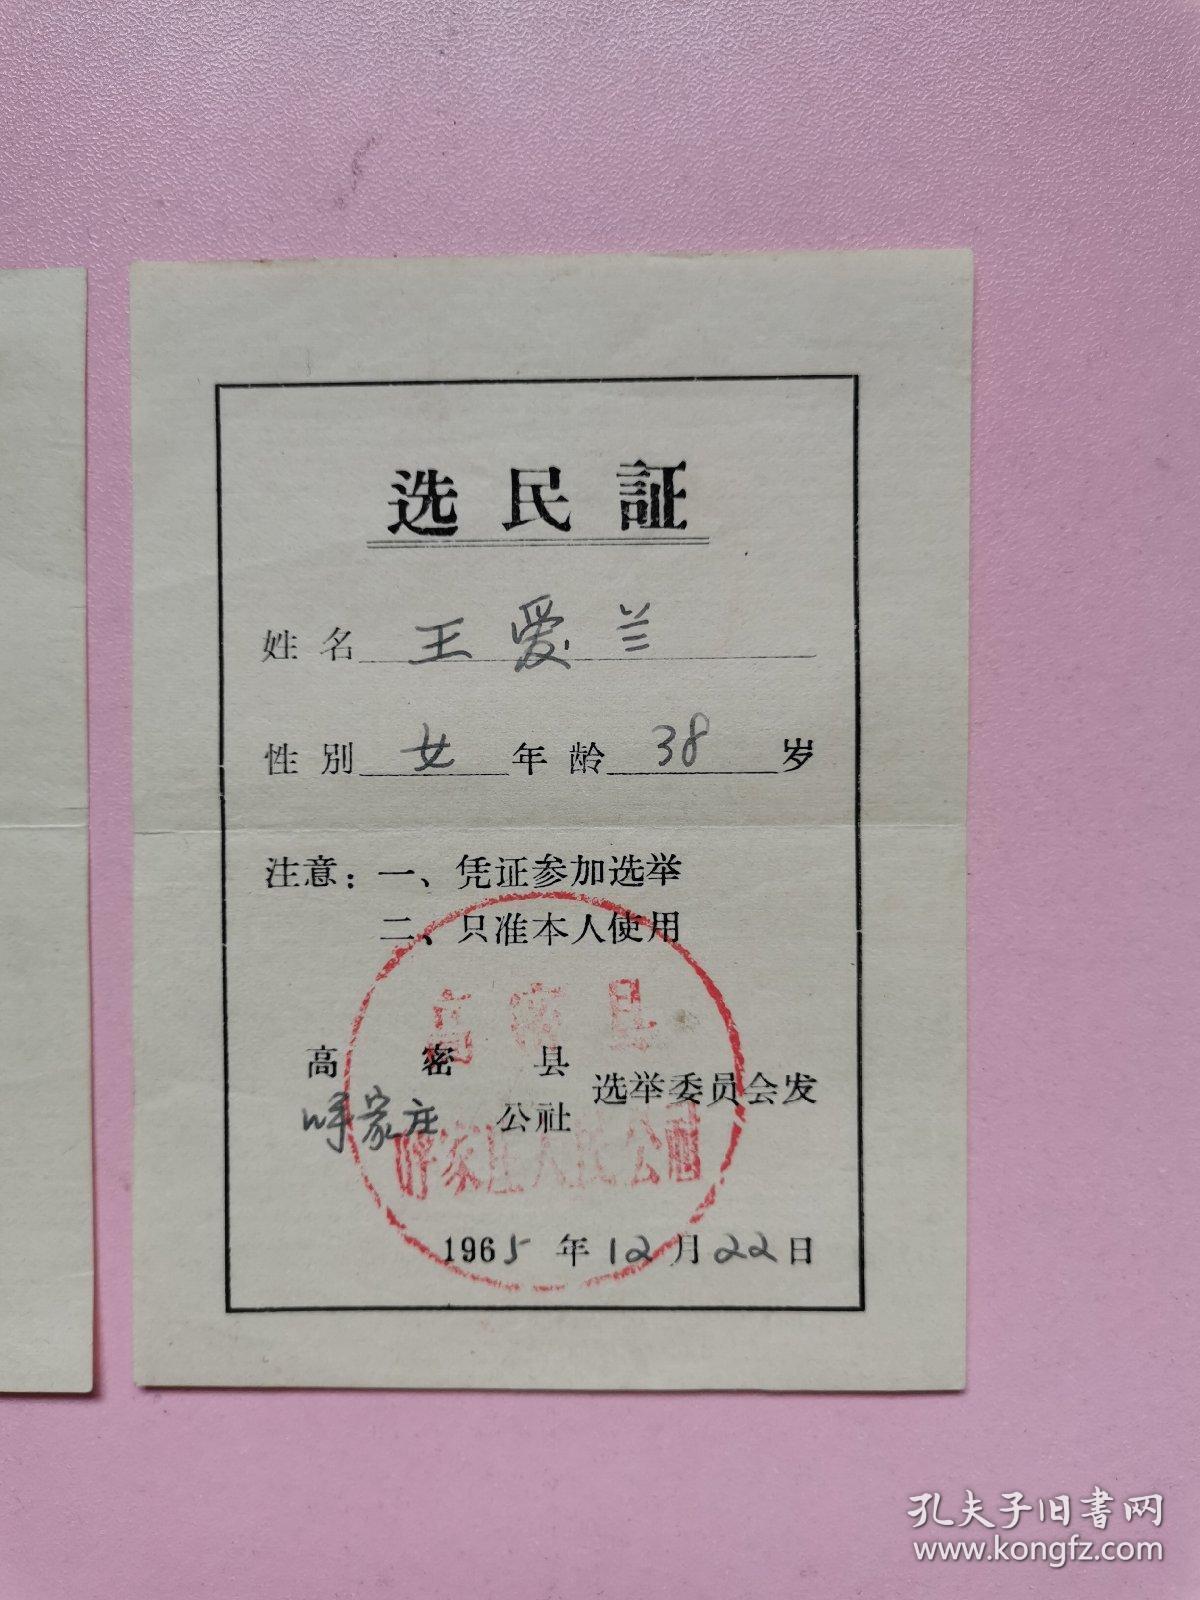 选民証
姓名 王爱兰
性别 女 年龄 38 岁
注意：一、凭证参加选举
二、只准本人使用
高密县
呼家庄 公社 选举委员会发
1965年12月22日
高密县
呼家庄人民公社
孔夫子旧书网
www.kongfz.com